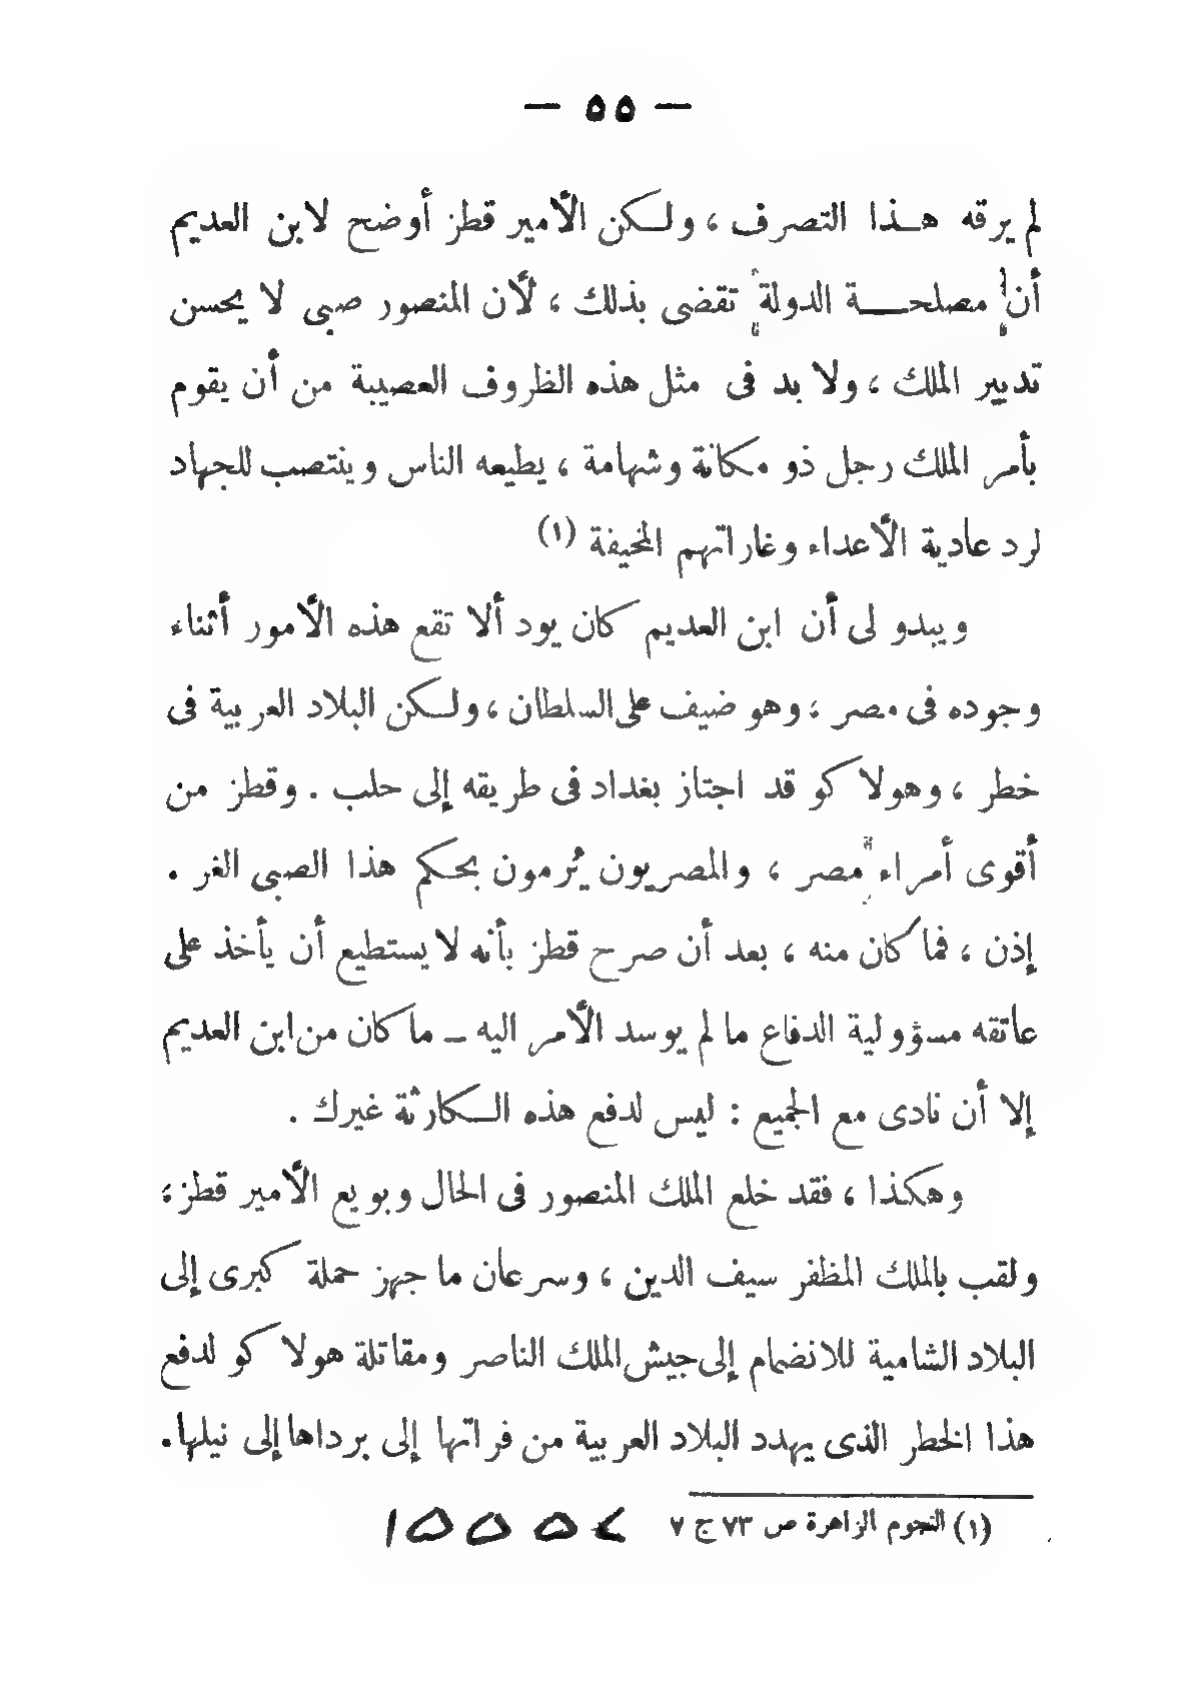 — ٥٥ —
لم يرقه هذا التصرف ، ولكن الأمير قطز أوضح لابن العديم
أن مصلحة الدولة تقضى بذلك ، لأن المنصور صبى لا يحسن
تدبير الملك ، ولا بد فى مثل هذه الظروف العصيبة من أن يقوم
بأمر الملك رجل ذو مكانة وشهامة ، يطيعه الناس وينتصب للجهاد
لرد عادية الأعداء وغاراتهم المخيفة (١)
ويبدو لى أن ابن العديم كان يود ألا تقع هذه الأمور أثناء
وجوده فى مصر ، وهو ضيف على السلطان ، ولكن البلاد العربية فى
خطر ، وهولاكو قد اجتاز بغداد فى طريقه إلى حلب . وقطز من
أقوى أمراء مصر ، والمصريون يُرمون بحكم هذا الصبى الغر .
إذن ، فما كان منه ، بعد أن صرح قطز بأنه لا يستطيع أن يأخذ على
عاتقه مسؤولية الدفاع ما لم يوسد الأمر اليه ــ ما كان من ابن العديم
إلا أن نادى مع الجميع : ليس لدفع هذه الكارثة غيرك .
وهكذا ، فقد خلع الملك المنصور فى الحال وبويع الأمير قطز ،
ولقب بالملك المظفر سيف الدين ، وسرعان ما جهز حملة كبرى إلى
البلاد الشامية للانضمام إلى جيش الملك الناصر ومقاتلة هولاكو لدفع
هذا الخطر الذى يهدد البلاد العربية من فراتها إلى برداها إلى نيلها.
(١) النجوم الزاهرة ص ٧٣ ج ٧